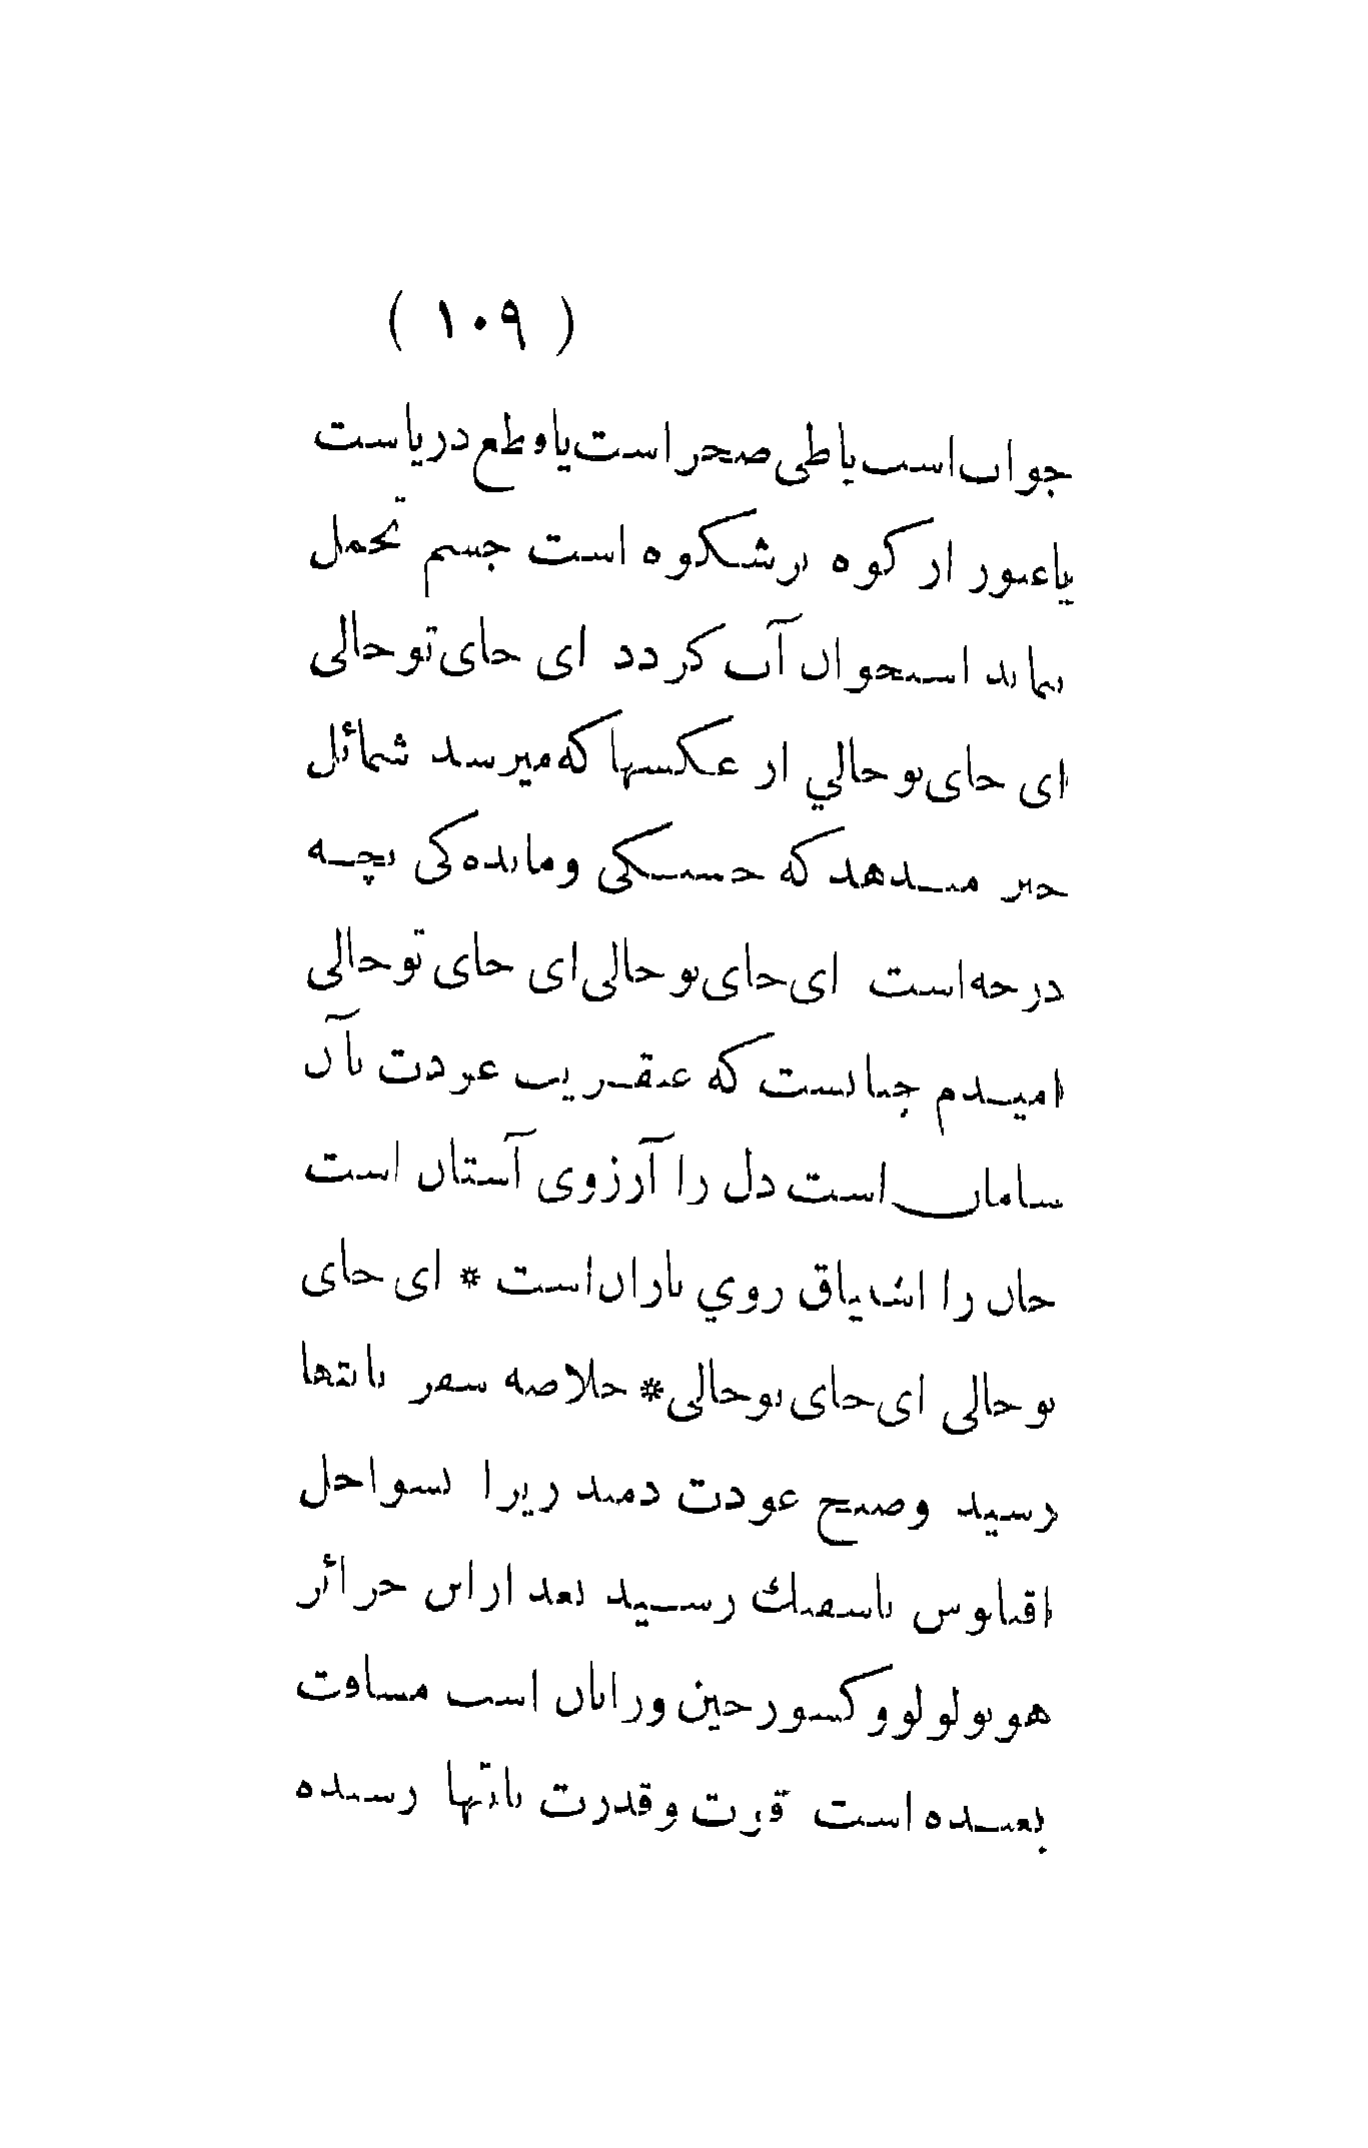 ( ١٠٩ )
جواب است یا طی صحر است یا قطع دریاست
یا عبور از کوه پرشکوه است جسم تحمل
نماید استخوان آب کردد ای جای تو خالی
ای جای تو خالي از عکسها که میرسد شمائل
خبر میدهد که خستکی و مانده کی بچه
درجه است ای جای تو خالی ای جای تو خالی
امیدم چنانست که عنقریب عودت بآن
سامان است دل را آرزوی آستان است
جان را اشتیاق روي یاران است * ای جای
تو خالی ای جای تو خالی * خلاصه سفر بانتها
رسید و صبح عودت دمید زیرا بسواحل
اقیانوس پاسفیك رسید بعد از این جزائر
هونولولو و کشور چین و ژاپان است مسافت
بعیده است قوت و قدرت بانتها رسیده